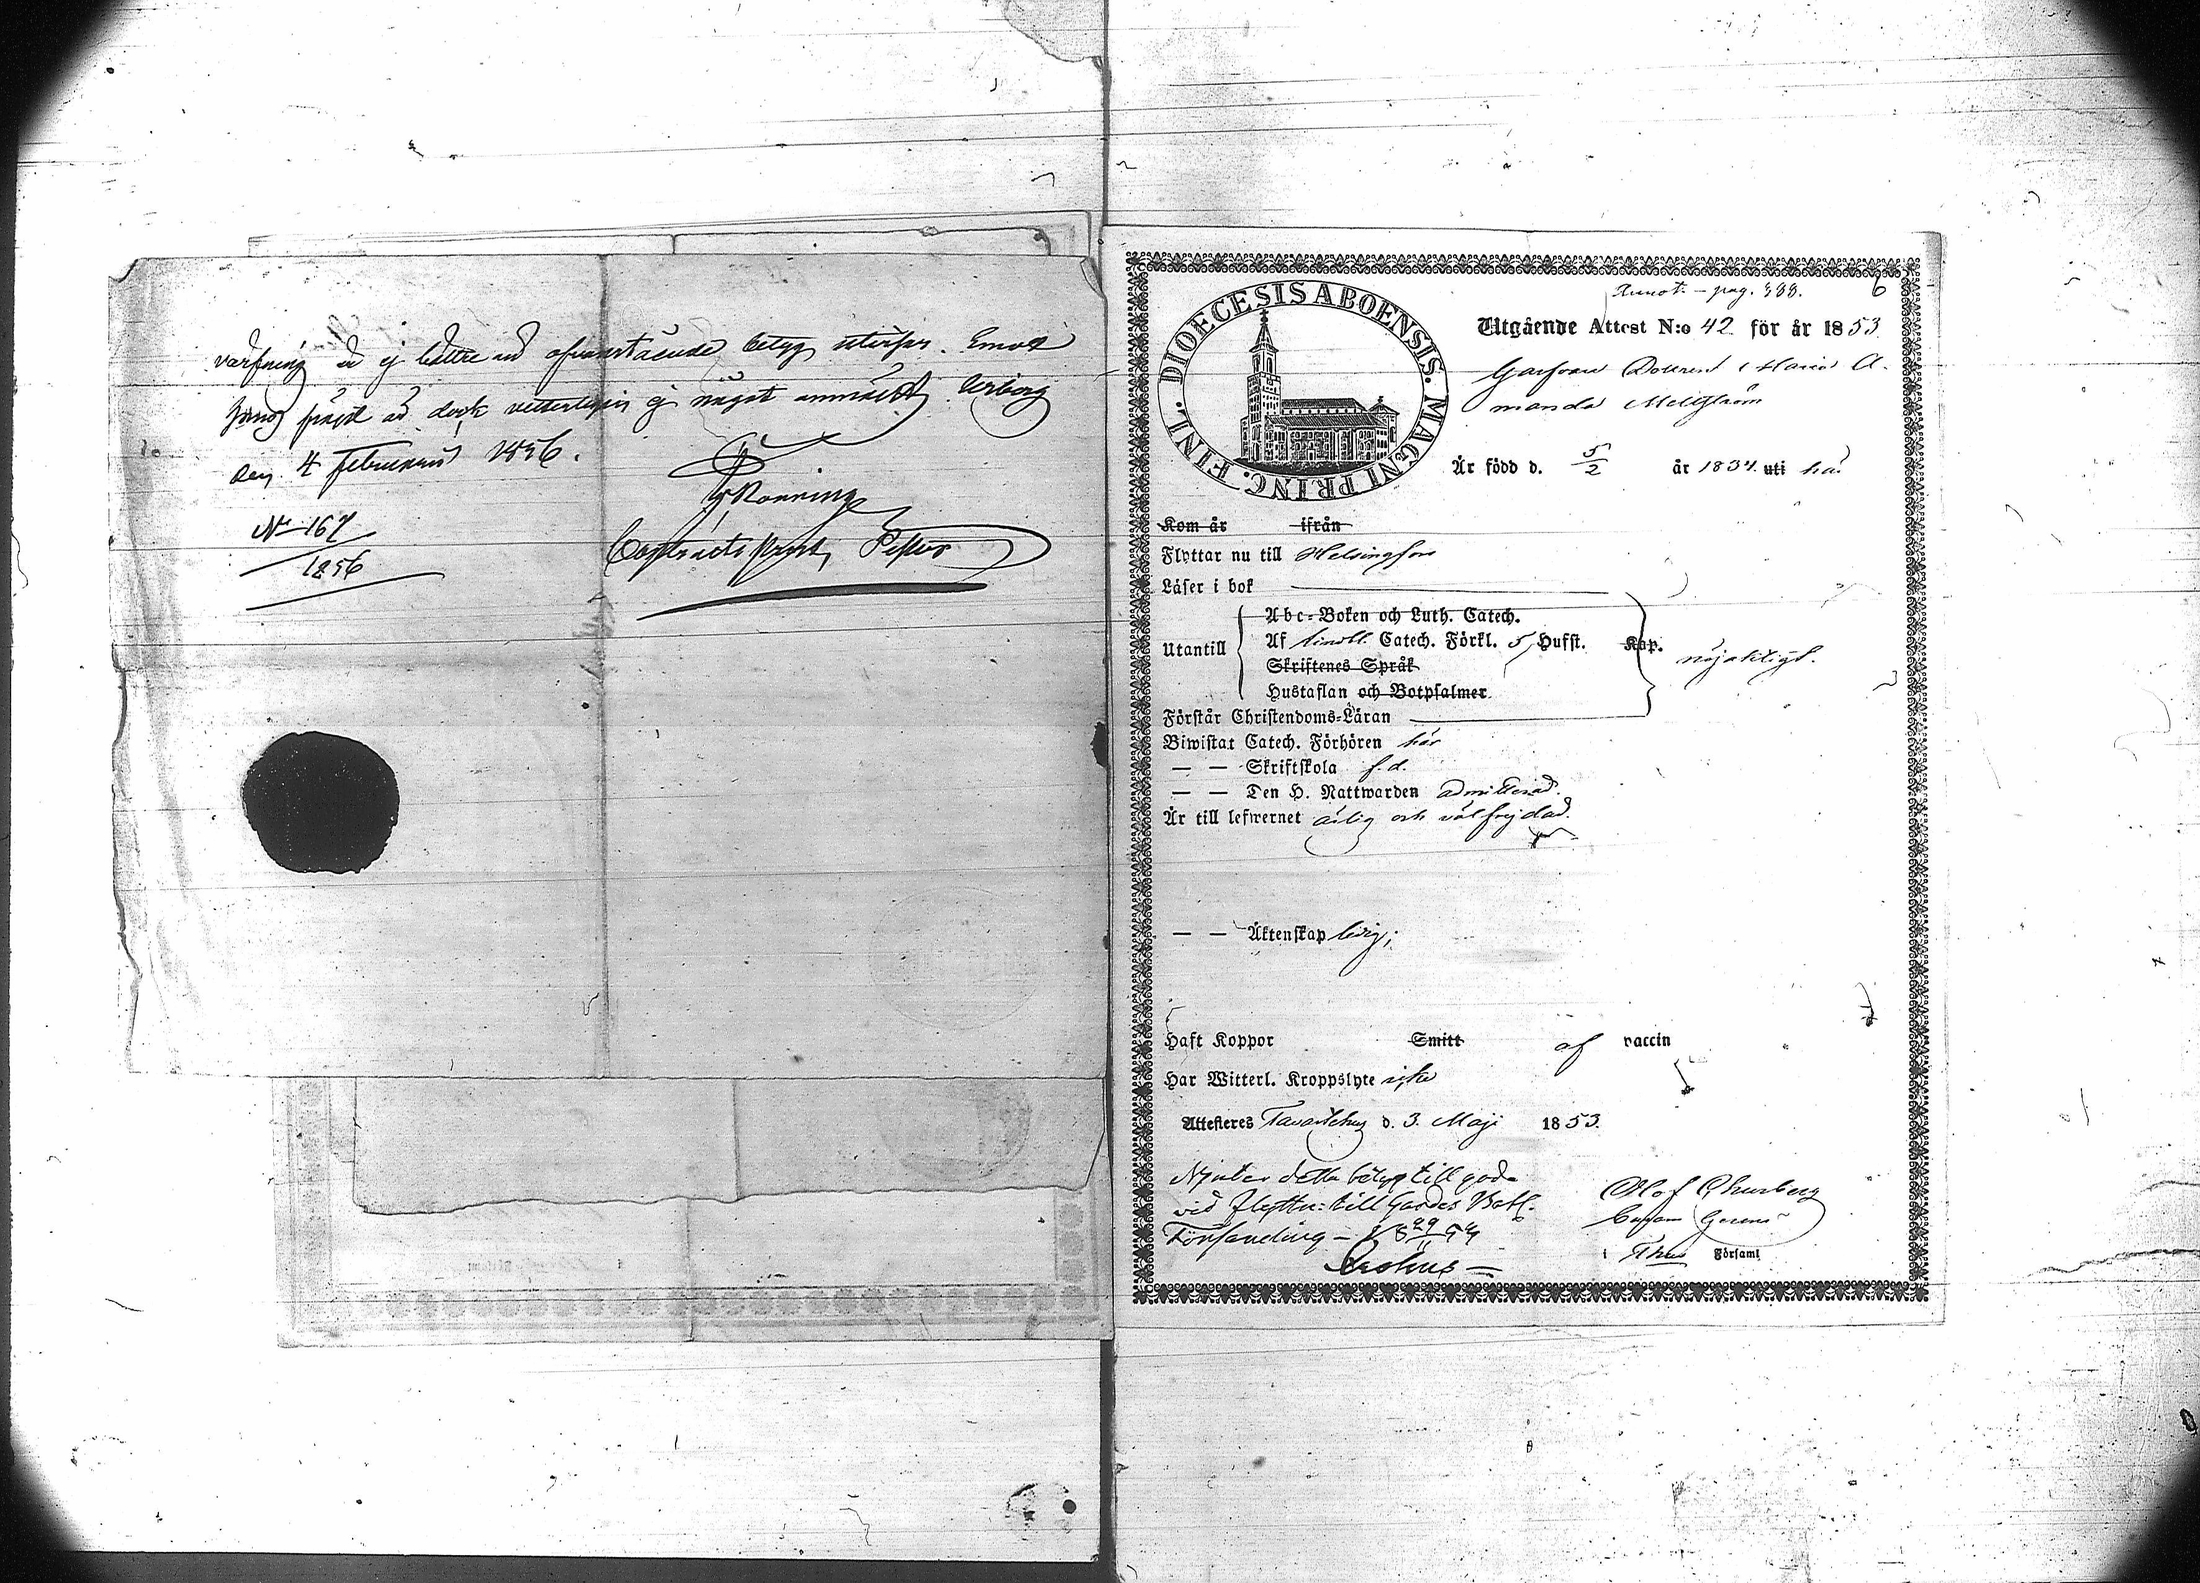 värfning är ej bättre än ofvanstående betyg utvisar. Emot
hans frejd är dock veterligen ej något anmärkt. Perborg
den 4 Februarii 1856.
No 167
1856
Contracts Prost,
6
Annot. pag. 388.
DIOECESIS ABOENSIS. MAGNI PRINC. FINL.
Utgående Attest N:o 42 för år 1853
Garfvare Maria A-
manda Mellström
Är född d. 5/2 år 1834 uti här
Kom år ifrån
Flyttar nu till Helsingfors
Läser i bok
Abc-Boken och Luth. Catech.
Utantill Af Catech. Förkl. 5 Hufst. Kap. nöjaktigt.
Skriftenes Språk
Hustaflan och Botpsalmer
Förstår Christendoms-Läran
Biwistat Catech. Förhören här
— — Skriftskola f. d.
— — Den H. Nattwarden admitterad.
Är till lefwernet ärlig och välfrejdad.
— — Äktenskap ledig;
Haft Koppor Smitt af vaccin
Har Witterl. Kroppslyte icke
Attesteres Tavastehus d. 3. Maji 1853.
Njuter detta betyg till godo
vid flyttn: till Gardes Batl.
Församling – 18 29/11 54
Olof Churberg
i Församl